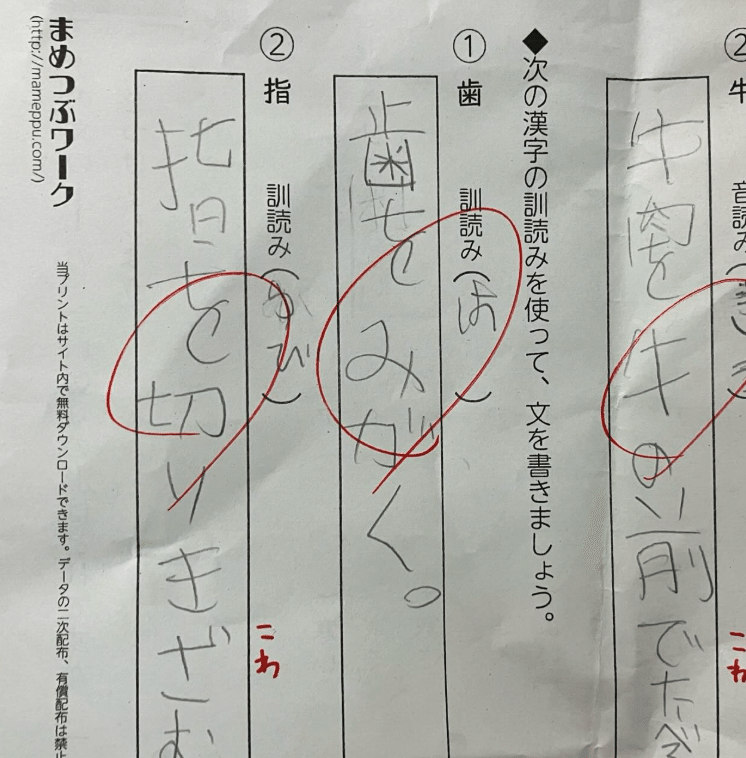 ② 牛
音読み(
牛肉を牛の前でたべ
こわ
◆次の漢字の訓読みを使って、文を書きましょう。
① 歯
訓読み(は)
歯をみがく。
② 指
訓読み(ゆび)
指を切りきざむ
こわ
まめつぶワーク
(http://mameppu.com/)
当プリントはサイト内で無料ダウンロードできます。データの二次配布、有償配布は禁止